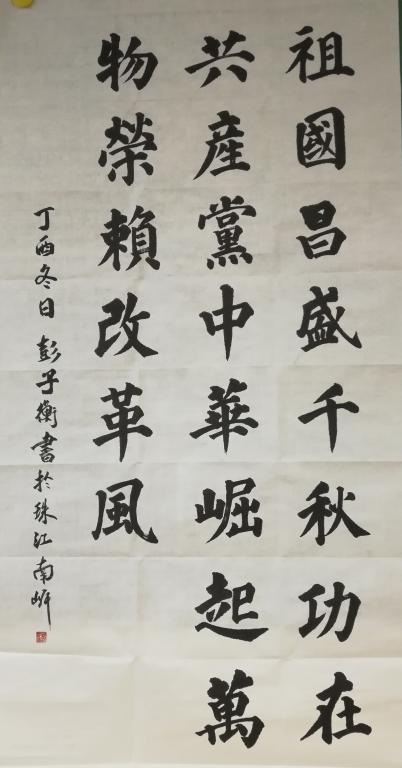 祖國昌盛千秋功在
共產黨中華崛起萬
物榮賴改革風
丁酉冬日彭子衡書於珠江南岸